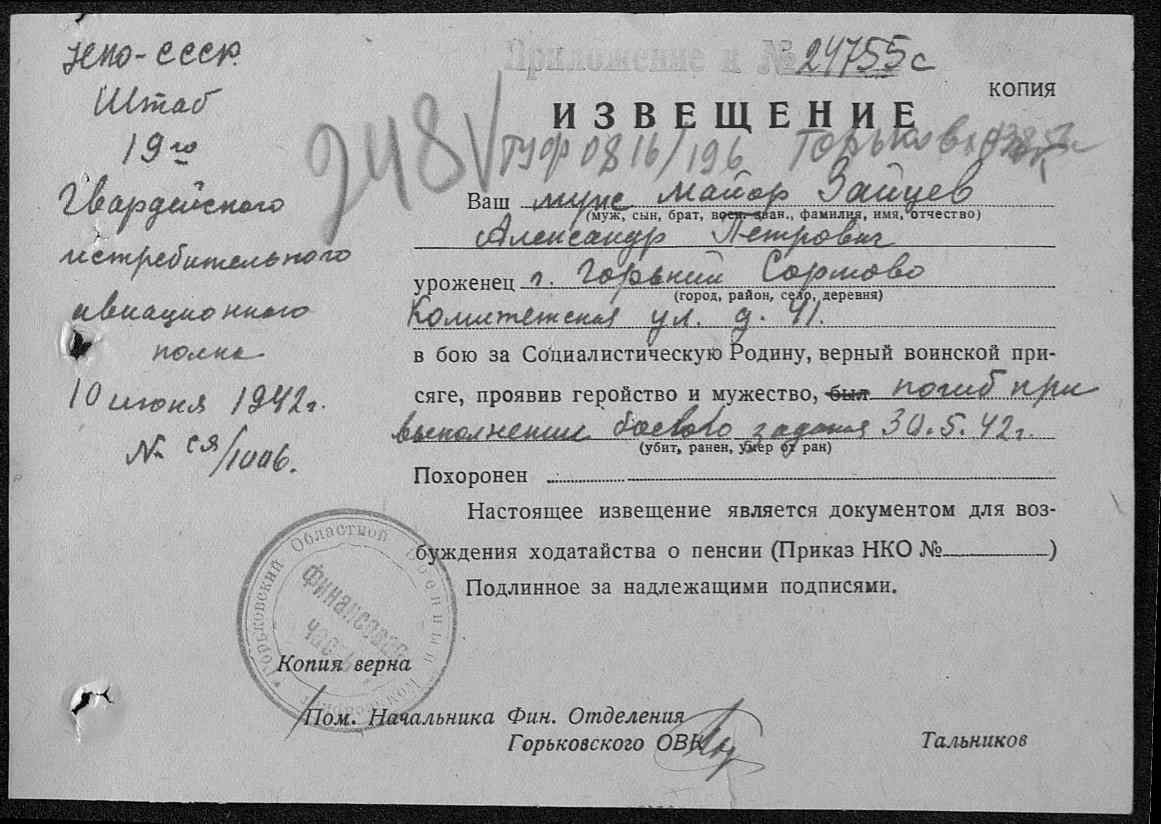 НКО-СССР.
Штаб
19го
Гвардейского
истребительного
авиационного
полка
10 июня 1942г.
№ ся/1006.
Приложение к № 24755с
КОПИЯ
ИЗВЕЩЕНИЕ
248
0816/196 Горьков
Ваш муж майор Зайцев
(муж, сын, брат, воен. зван., фамилия, имя, отчество)
Александр Петрович
уроженец г. Горький Сормово
(город, район, село, деревня)
Комитетская ул. д. 41.
в бою за Социалистическую Родину, верный воинской при-
сяге, проявив геройство и мужество, был погиб при
выполнении боевого задания 30.5.42г.
(убит, ранен, умер от ран)
Похоронен
Настоящее извещение является документом для воз-
буждения ходатайства о пенсии (Приказ НКО №)
Подлинное за надлежащими подписями.
Горьковский Областной Военный
Финансовая
часть
Копия верна
Пом. Начальника Фин. Отделения
Горьковского ОВК
Тальников